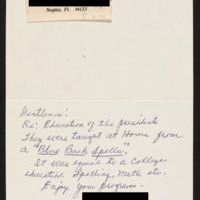 Naples, FL 34112
Gentlemen:
Re: Education of the presidents
They were taught at Home from
a "Blue Back Speller".
It was equal to a College
education Spelling, Math etc.
Enjoy your program.